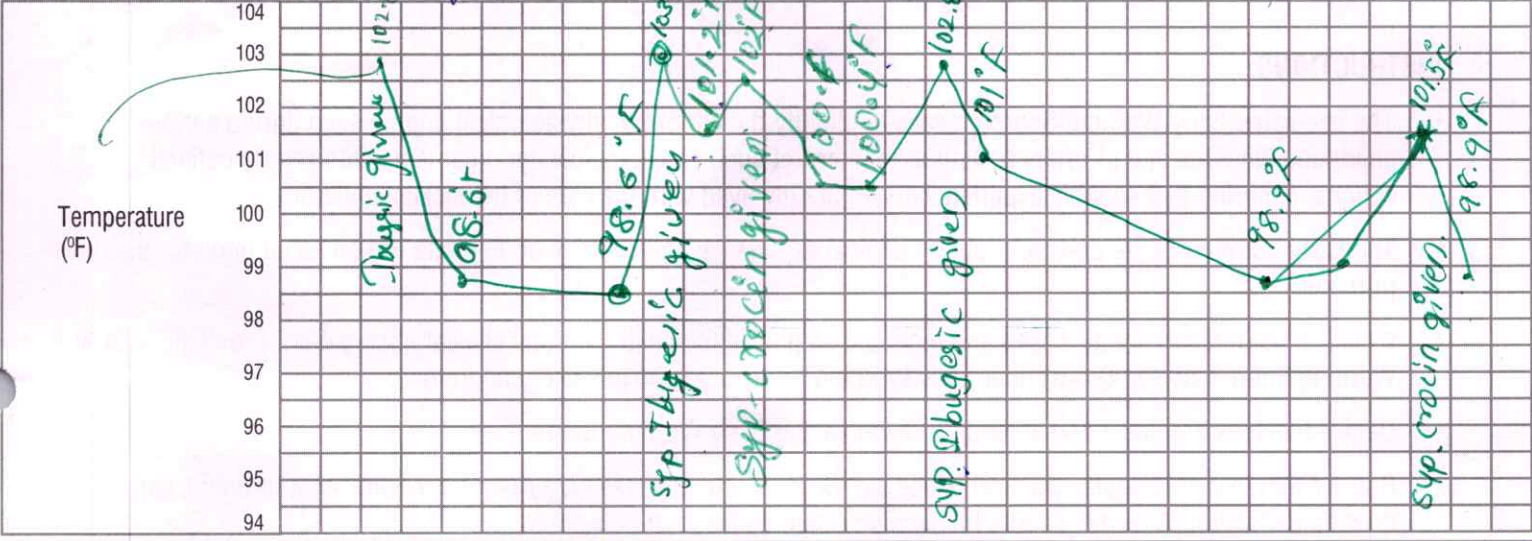 104
103
102
101
100
99
98
97
96
95
94
Temperature
(ºF)
Ibugesic given
98.6F
98.6°F
Syp Ibugesic given
101.2°F
102°F
Syp. crocin given.
100°F
SYP. Ibugesic given
101°F
98.9°F
101.5°F
Syp. Crocin given.
98.9°F